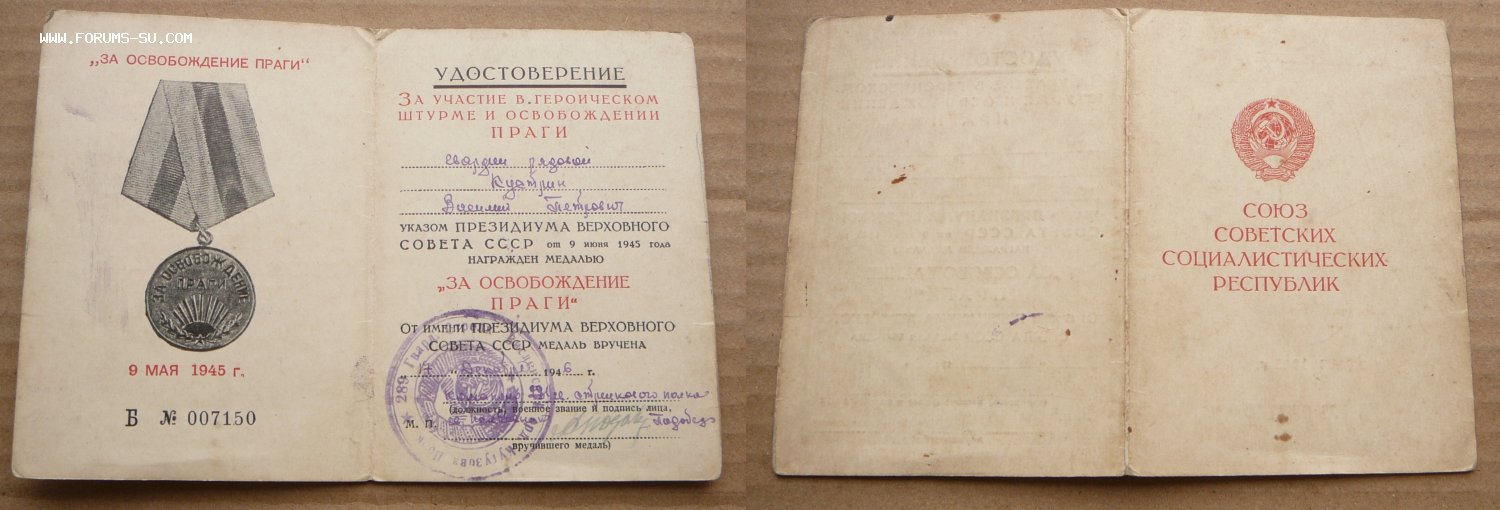 www.forums-su.com
„ЗА ОСВОБОЖДЕНИЕ ПРАГИ“
ЗА ОСВОБОЖДЕНИЕ
ПРАГИ
9 МАЯ 1945 г.
Б № 007150
УДОСТОВЕРЕНИЕ
ЗА УЧАСТИЕ В ГЕРОИЧЕСКОМ
ШТУРМЕ И ОСВОБОЖДЕНИИ
ПРАГИ
гвардии рядовой
Василий Петрович
УКАЗОМ ПРЕЗИДИУМА ВЕРХОВНОГО
СОВЕТА СССР от 9 июня 1945 года
НАГРАЖДЕН МЕДАЛЬЮ
„ЗА ОСВОБОЖДЕНИЕ
ПРАГИ“
От имени ПРЕЗИДИУМА ВЕРХОВНОГО
СОВЕТА СССР МЕДАЛЬ ВРУЧЕНА
17 декабря 1946 г.
стрелкового полка
(должность, военное звание и подпись лица,
М. П.
вручившего медаль)
289 Кутузова
СОЮЗ
СОВЕТСКИХ
СОЦИАЛИСТИЧЕСКИХ
РЕСПУБЛИК